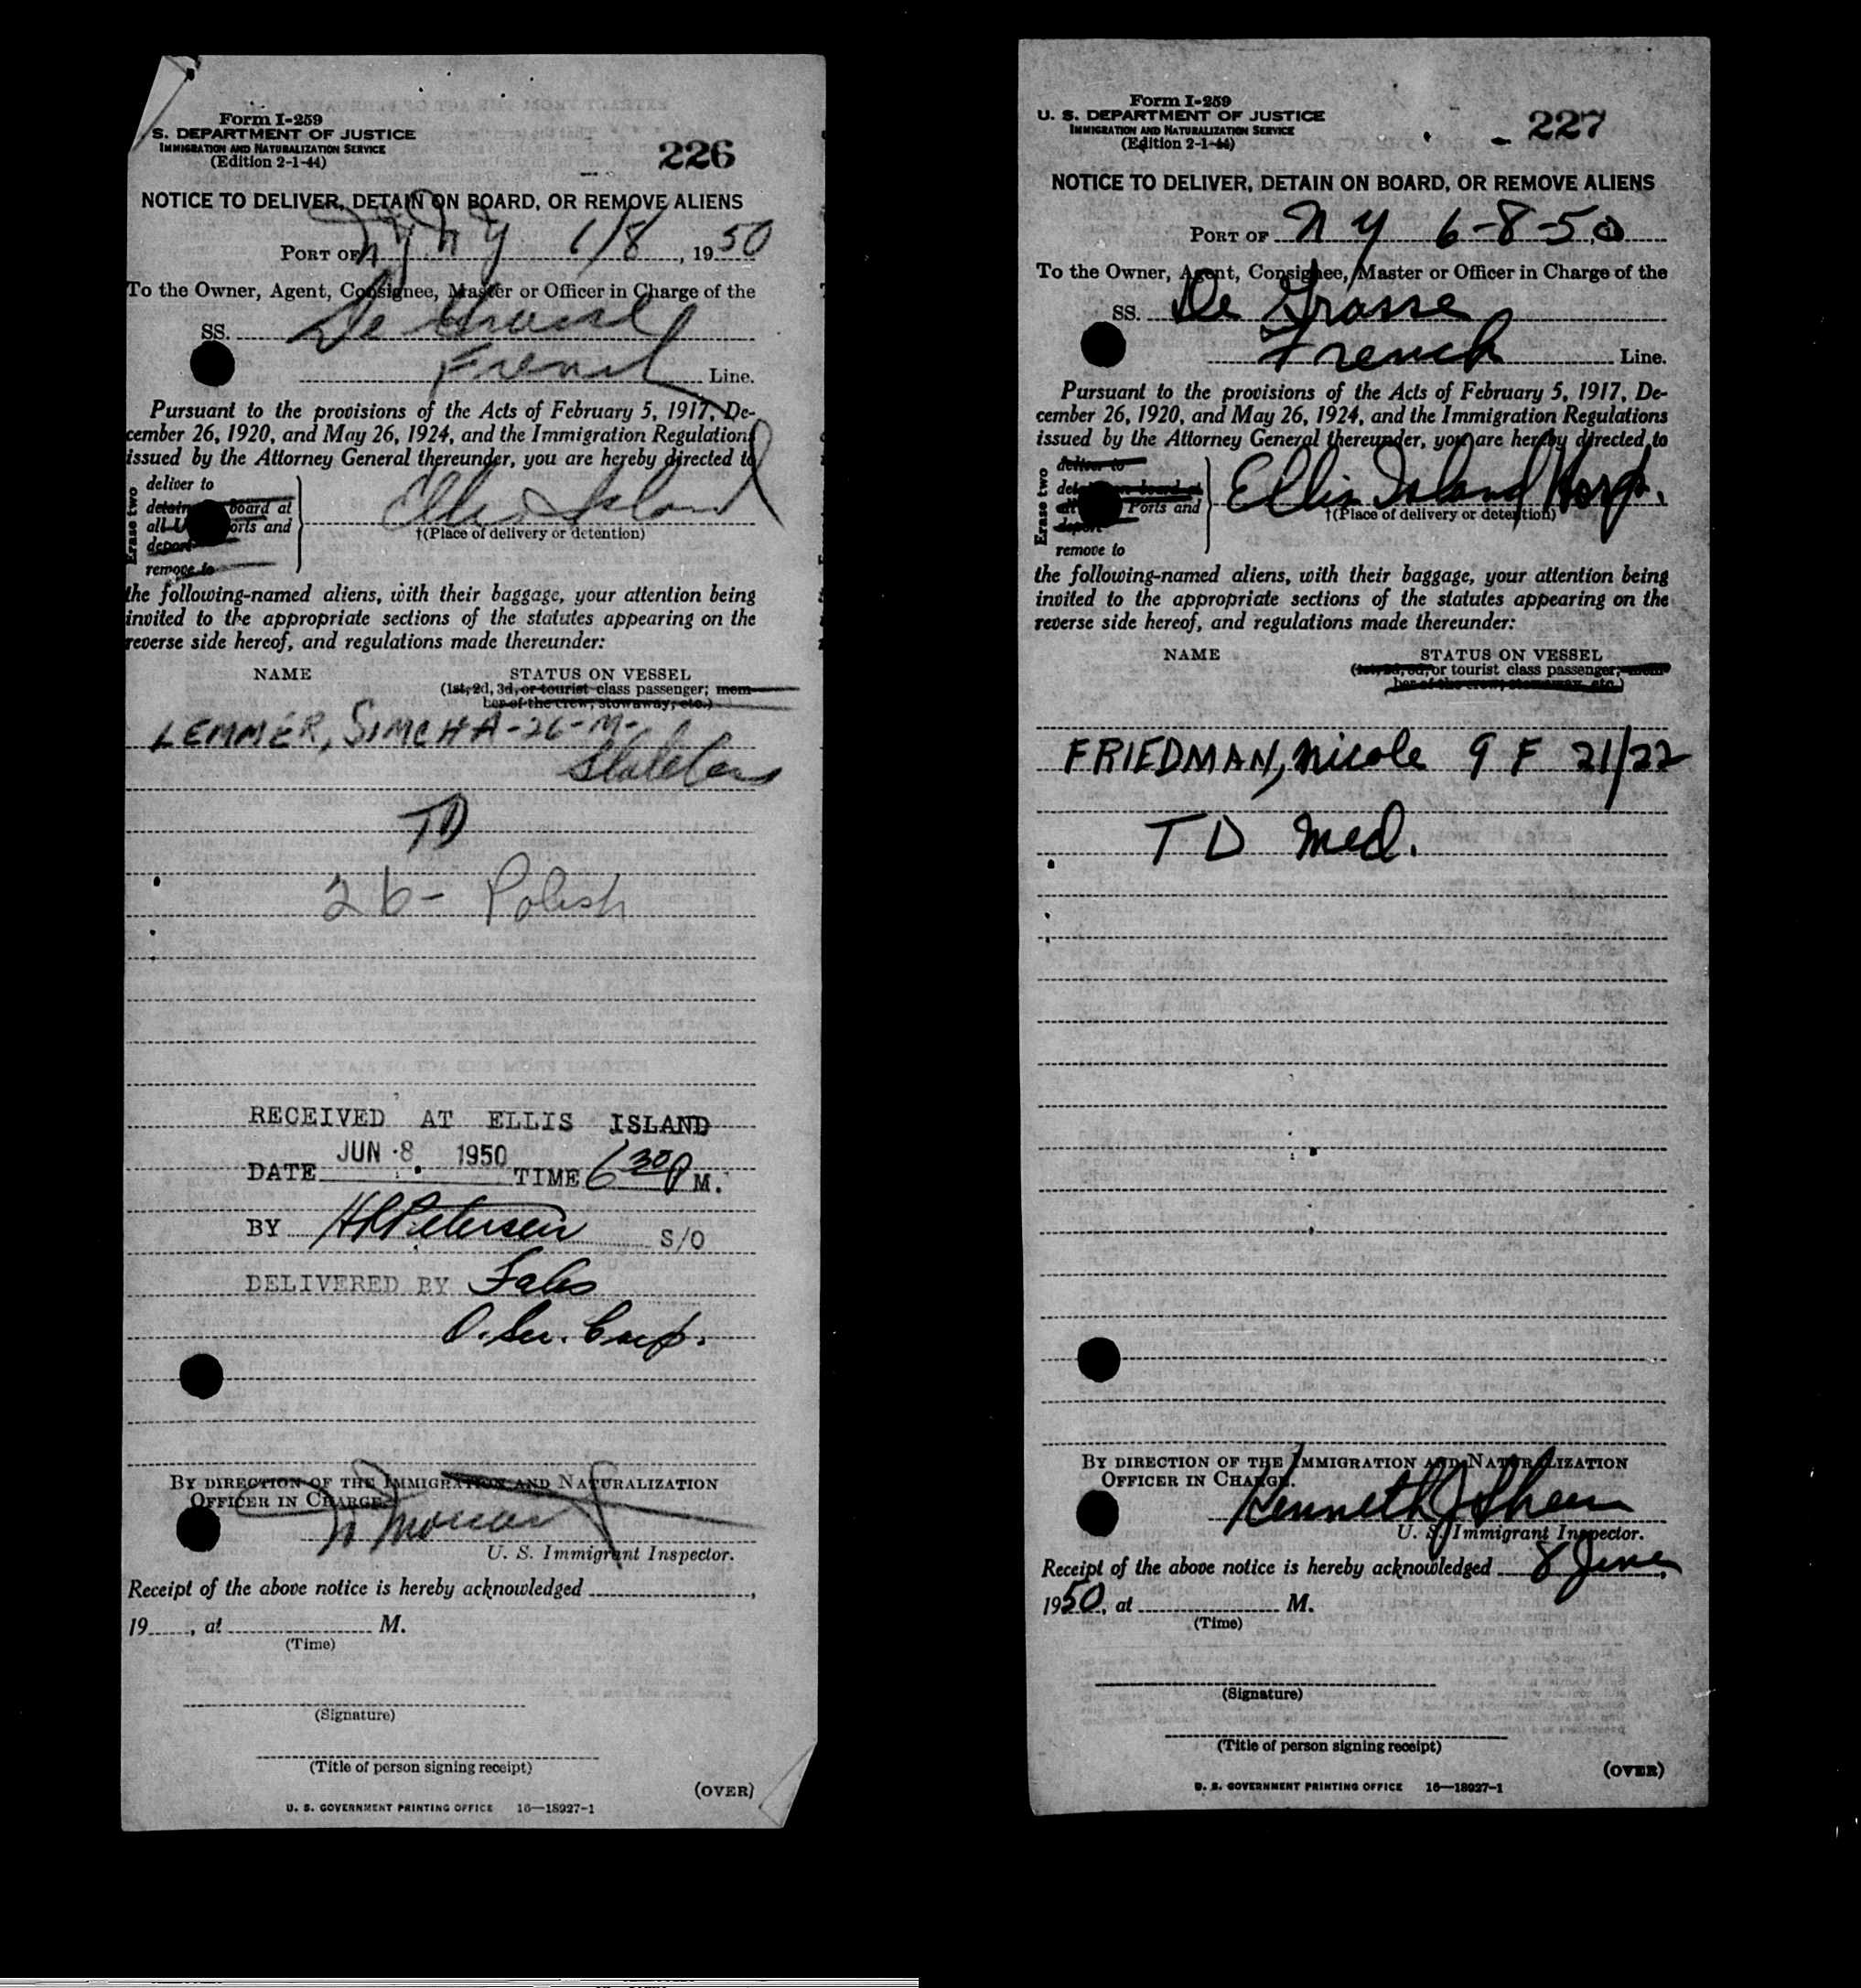 Form I-259
S. DEPARTMENT OF JUSTICE
IMMIGRATION AND NATURALIZATION SERVICE
(Edition 2-1-44)
226
NOTICE TO DELIVER, DETAIN ON BOARD, OR REMOVE ALIENS
PORT OF N Y N Y 6/8, 1950
To the Owner, Agent, Consignee, Master or Officer in Charge of the
SS. De Grasse
French Line.
Pursuant to the provisions of the Acts of February 5, 1917, De-
cember 26, 1920, and May 26, 1924, and the Immigration Regulations
issued by the Attorney General thereunder, you are hereby directed to
Erase two
deliver to
detain board at
all U orts and
deport
remove to
Ellis Island
†(Place of delivery or detention)
the following-named aliens, with their baggage, your attention being
invited to the appropriate sections of the statutes appearing on the
reverse side hereof, and regulations made thereunder:
NAME STATUS ON VESSEL
(1st, 2d, 3d, or tourist class passenger; mem-
ber of the crew, stowaway, etc.)
LEMMER, SIMCHA-26-M-
Stateless
TD
26- Polish
RECEIVED AT ELLIS ISLAND
DATE JUN 8 1950 TIME 6 30 P M.
BY H Petersen S/O
DELIVERED BY
Corp.
BY DIRECTION OF THE IMMIGRATION AND NATURALIZATION
OFFICER IN CHARGE.
U. S. Immigrant Inspector.
Receipt of the above notice is hereby acknowledged ,
19 , at M.
(Time)
(Signature)
(Title of person signing receipt)
(OVER)
U. S. GOVERNMENT PRINTING OFFICE 16—18927-1
Form I-259
U. S. DEPARTMENT OF JUSTICE
IMMIGRATION AND NATURALIZATION SERVICE
(Edition 2-1-44)
227
NOTICE TO DELIVER, DETAIN ON BOARD, OR REMOVE ALIENS
PORT OF N Y 6-8-50
To the Owner, Agent, Consignee, Master or Officer in Charge of the
SS. De Grasse
French Line.
Pursuant to the provisions of the Acts of February 5, 1917, De-
cember 26, 1920, and May 26, 1924, and the Immigration Regulations
issued by the Attorney General thereunder, you are hereby directed to
Erase two
deliver to
det on board at
all Ports and
deport
remove to
Ellis Island Hosp.
†(Place of delivery or detention)
the following-named aliens, with their baggage, your attention being
invited to the appropriate sections of the statutes appearing on the
reverse side hereof, and regulations made thereunder:
NAME STATUS ON VESSEL
(1st, 2d, 3d, or tourist class passenger; mem-
ber of the crew, stowaway, etc.)
FRIEDMAN, Nicole 9 F 21/22
TD Med.
BY DIRECTION OF THE IMMIGRATION AND NATURALIZATION
OFFICER IN CHARGE.
Kenneth J Sheen
U. S. Immigrant Inspector.
Receipt of the above notice is hereby acknowledged 8 June,
1950, at M.
(Time)
(Signature)
(Title of person signing receipt)
(OVER)
U. S. GOVERNMENT PRINTING OFFICE 16—18927-1